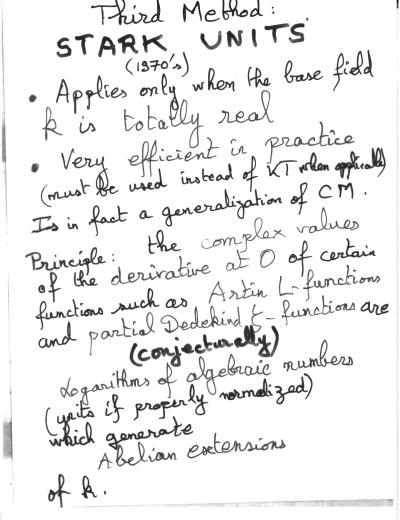 Third Method:
STARK UNITS
(1970's)
• Applies only when the base field
k is totally real
• Very efficient in practice
(must be used instead of KT when applicable)
Is in fact a generalization of CM.
Principle: the complex values
of the derivative at 0 of certain
functions such as Artin L-functions
and partial Dedekind ζ-functions are
(conjecturally)
Logarithms of algebraic numbers
(units if properly normalized)
which generate
Abelian extensions
of k.